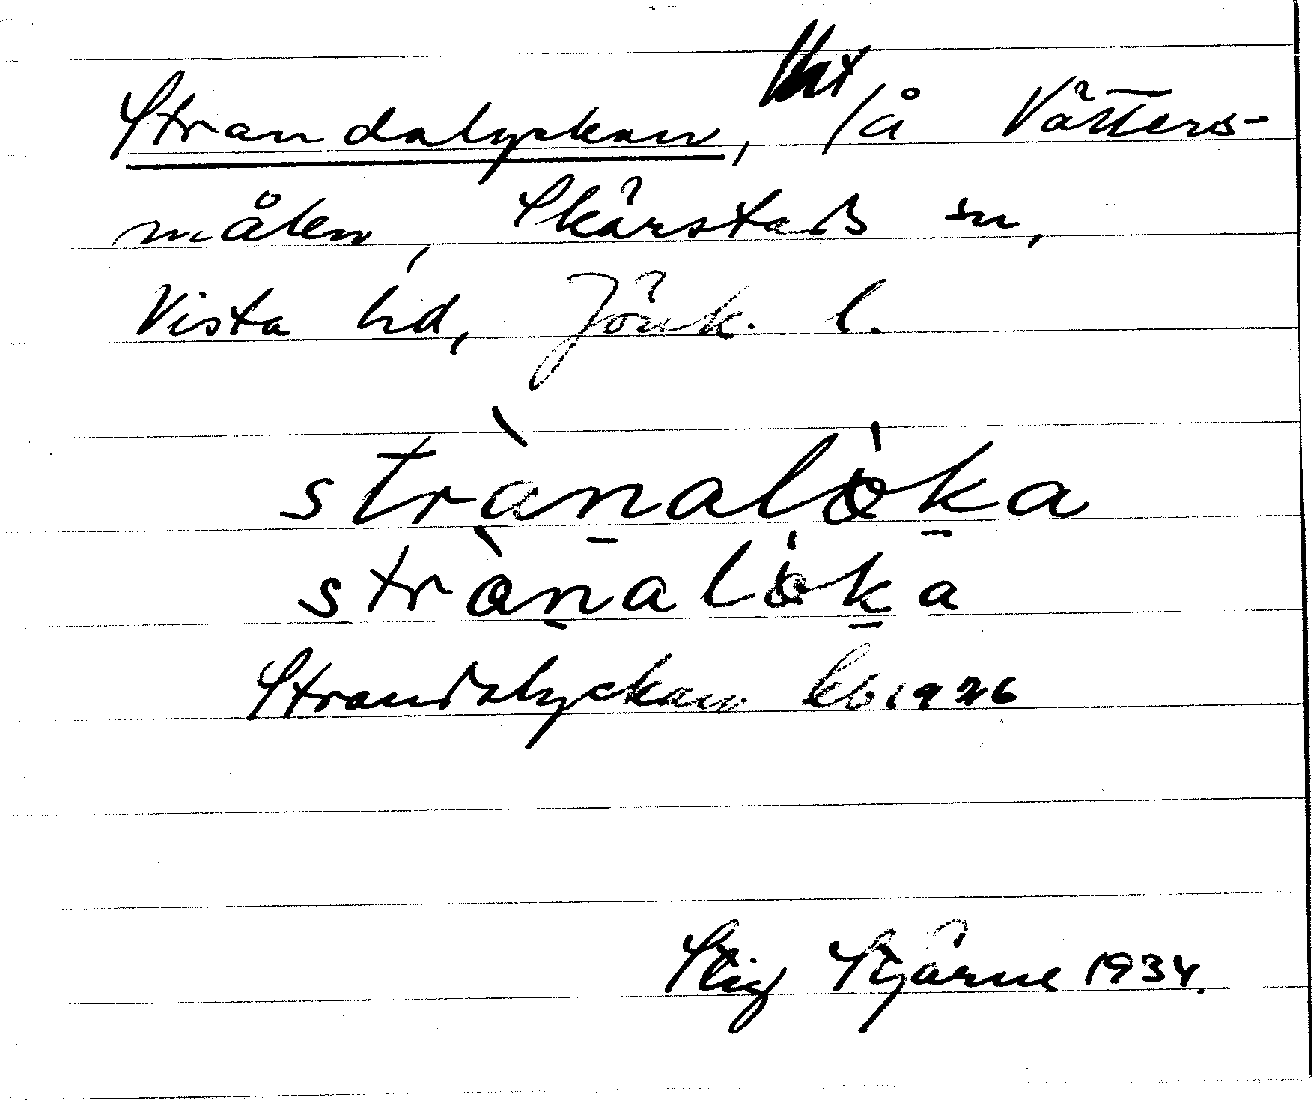 Strandalyckan, lht /å Vätters-
målen, Skärstads sn,
Vista hd, Jönk. l.
strànalò̱ka
strànalò̱ka
Strandalyckan kb 1926
Stig Stjärne 1934.